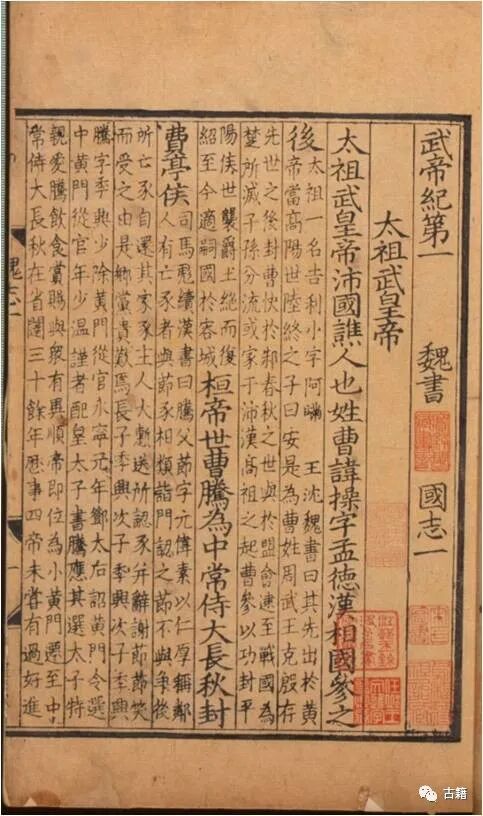 武帝紀第一 魏書 國志一
太祖武皇帝
太祖武皇帝沛國譙人也姓曹諱操字孟德漢相國參之
後
太祖一名吉利小字阿瞞 王沈魏書曰其先出於黃
帝當高陽世陸終之子曰安是為曹姓周武王克殷存
先世之後封曹俠於邾春秋之世與於盟會逮至戰國為
楚所滅子孫分流或家于沛漢高祖之起曹參以功封平
陽侯世襲爵土絕而復
紹至今適嗣國於容城
桓帝世曹騰為中常侍大長秋封
費亭侯
司馬彪續漢書曰騰父節字元偉素以仁厚稱鄰
人有亡豕者與節豕相類詣門認之節不與爭後
所亡豕自還其家豕主人大慙送所認豕并辭謝節節笑
而受之由是鄉黨貴歎焉長子季興次子季興次子季興
騰字季興少除黃門從官永寧元年鄧太后詔黃門令選
中黃門從官年少溫謹者配皇太子書騰應其選太子特
親愛騰飲食賞賜與眾有異順帝即位為小黃門遷至中
常侍大長秋在省闥三十餘年歷事四帝未嘗有過好進
魏志一
古籍